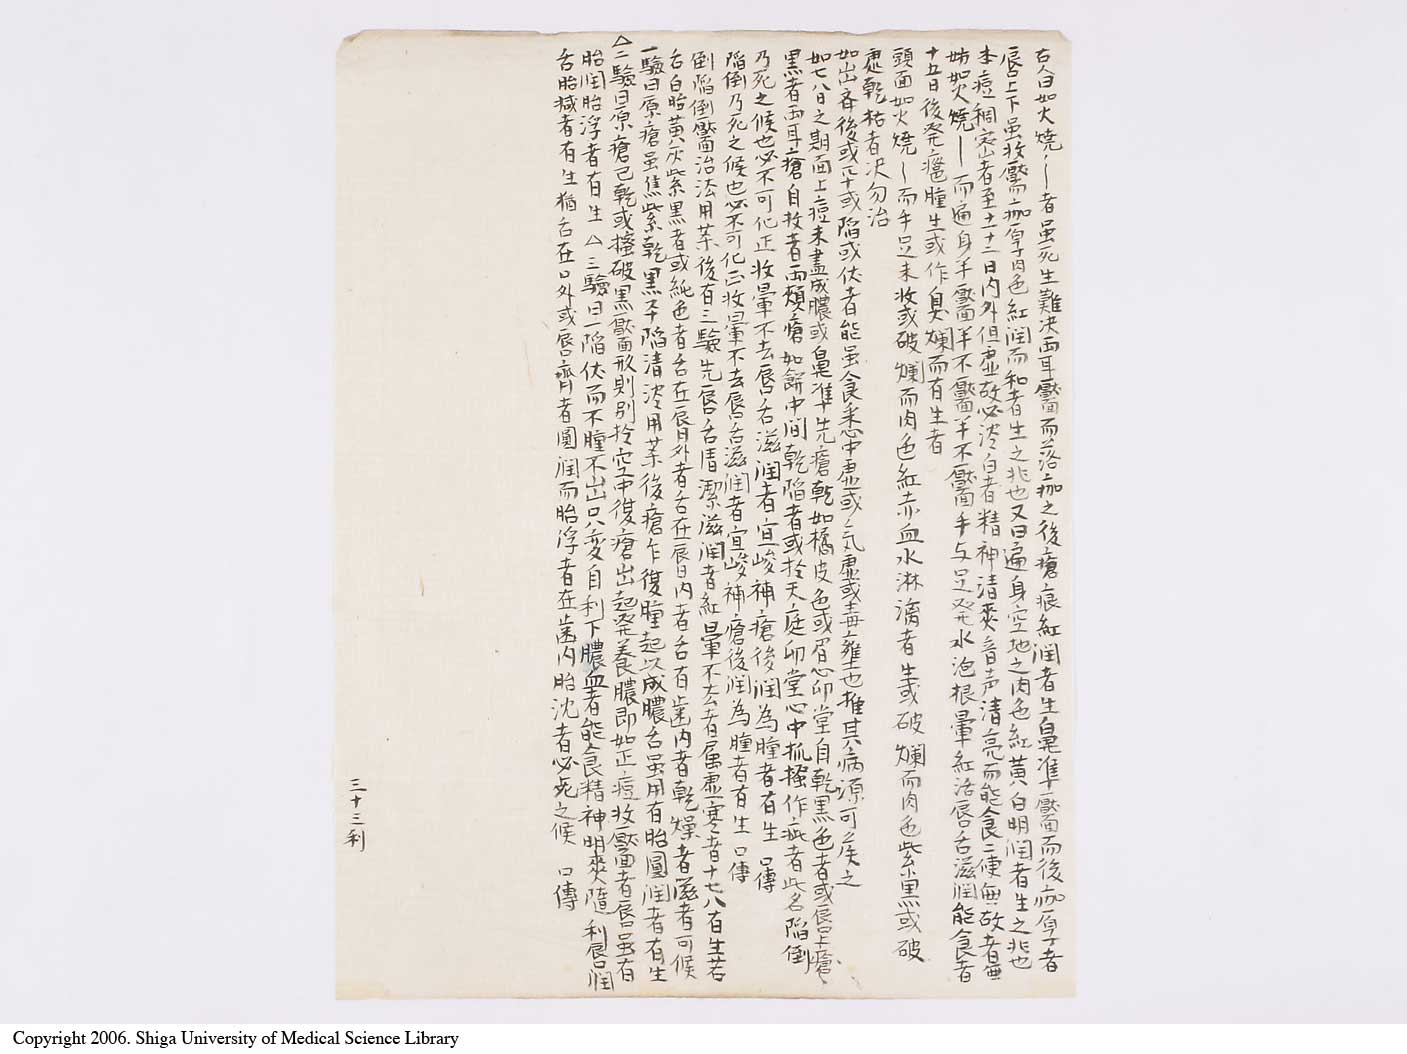 右白如火燒〻者虽死生難决両耳靨而落痂之後瘡痕紅潤者生鼻準靨而後痂厚者
唇上下虽收靨痂厚肉色紅潤而和者生之兆也又曰遍身空地之肉色紅黄白明潤者生之兆也
本痘稠密者至十一十二日内外但虚故必淡白者精神清爽音声清亮而能食二便無故者無
妨如火燒〻而遍身半靨半不靨半不靨手与足発水泡根暈紅活唇舌滋潤能食者
十五日後発癰腫生或作臭爛而有生者
頭面如火燒〻而手足未收或破爛而肉色紅赤血水淋漓者生或破爛而肉色紫黒或破
虚乾枯者决勿治
如出斉後或平或陥或伏者能虽食悉中虚或気虚或毒壅也推其病源可矣之
如七八日之期面上痘未盡成膿或鼻準先瘡乾如橘皮色或眉心印堂自乾黒色者或唇上瘡
黒者両耳瘡自收者両頬瘡如餅中间乾陥者或於天庭印堂心中抓搔作疵者此名陥倒
乃死之候也必不可化正收暈不去唇舌滋潤者宜峻補瘡後潤為腫者有生 口傳
陥倒乃死之候也必不可化正收暈不去唇舌滋潤者宜峻補瘡後潤為腫者有生 口傳
倒陥倒靨治法用薬後有三驗先唇舌唐潔滋潤者紅暈不去者属虚寒者十七八有生若
舌白胎黄灰紫黒者或純色者舌在唇外者舌在唇内者舌有歯内者乾燥者滋者可候
一驗曰原瘡虽焦紫乾黒不陥清淡用薬後瘡乍復腫起以成膿舌虽用有胎圓潤者有生
△二驗曰原瘡已乾或搔破黒靨形則別於空中復瘡出起発養膿即如正痘收靨者唇虽有
胎潤胎浮者有生 △三驗曰一陥伏而不腫不出只変自利下膿血者能食精神明爽隨利唇潤
舌胎減者有生猶舌在口外或唇齊者圓潤而胎浮者在歯内胎沈者必死之候 口傳
三十三利
Copyright 2006. Shiga University of Medical Science Library